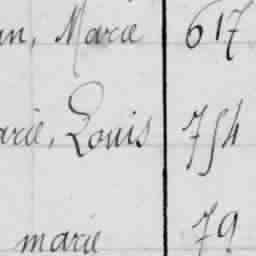 n, Marie 617
arie, Louis 754
marie 79